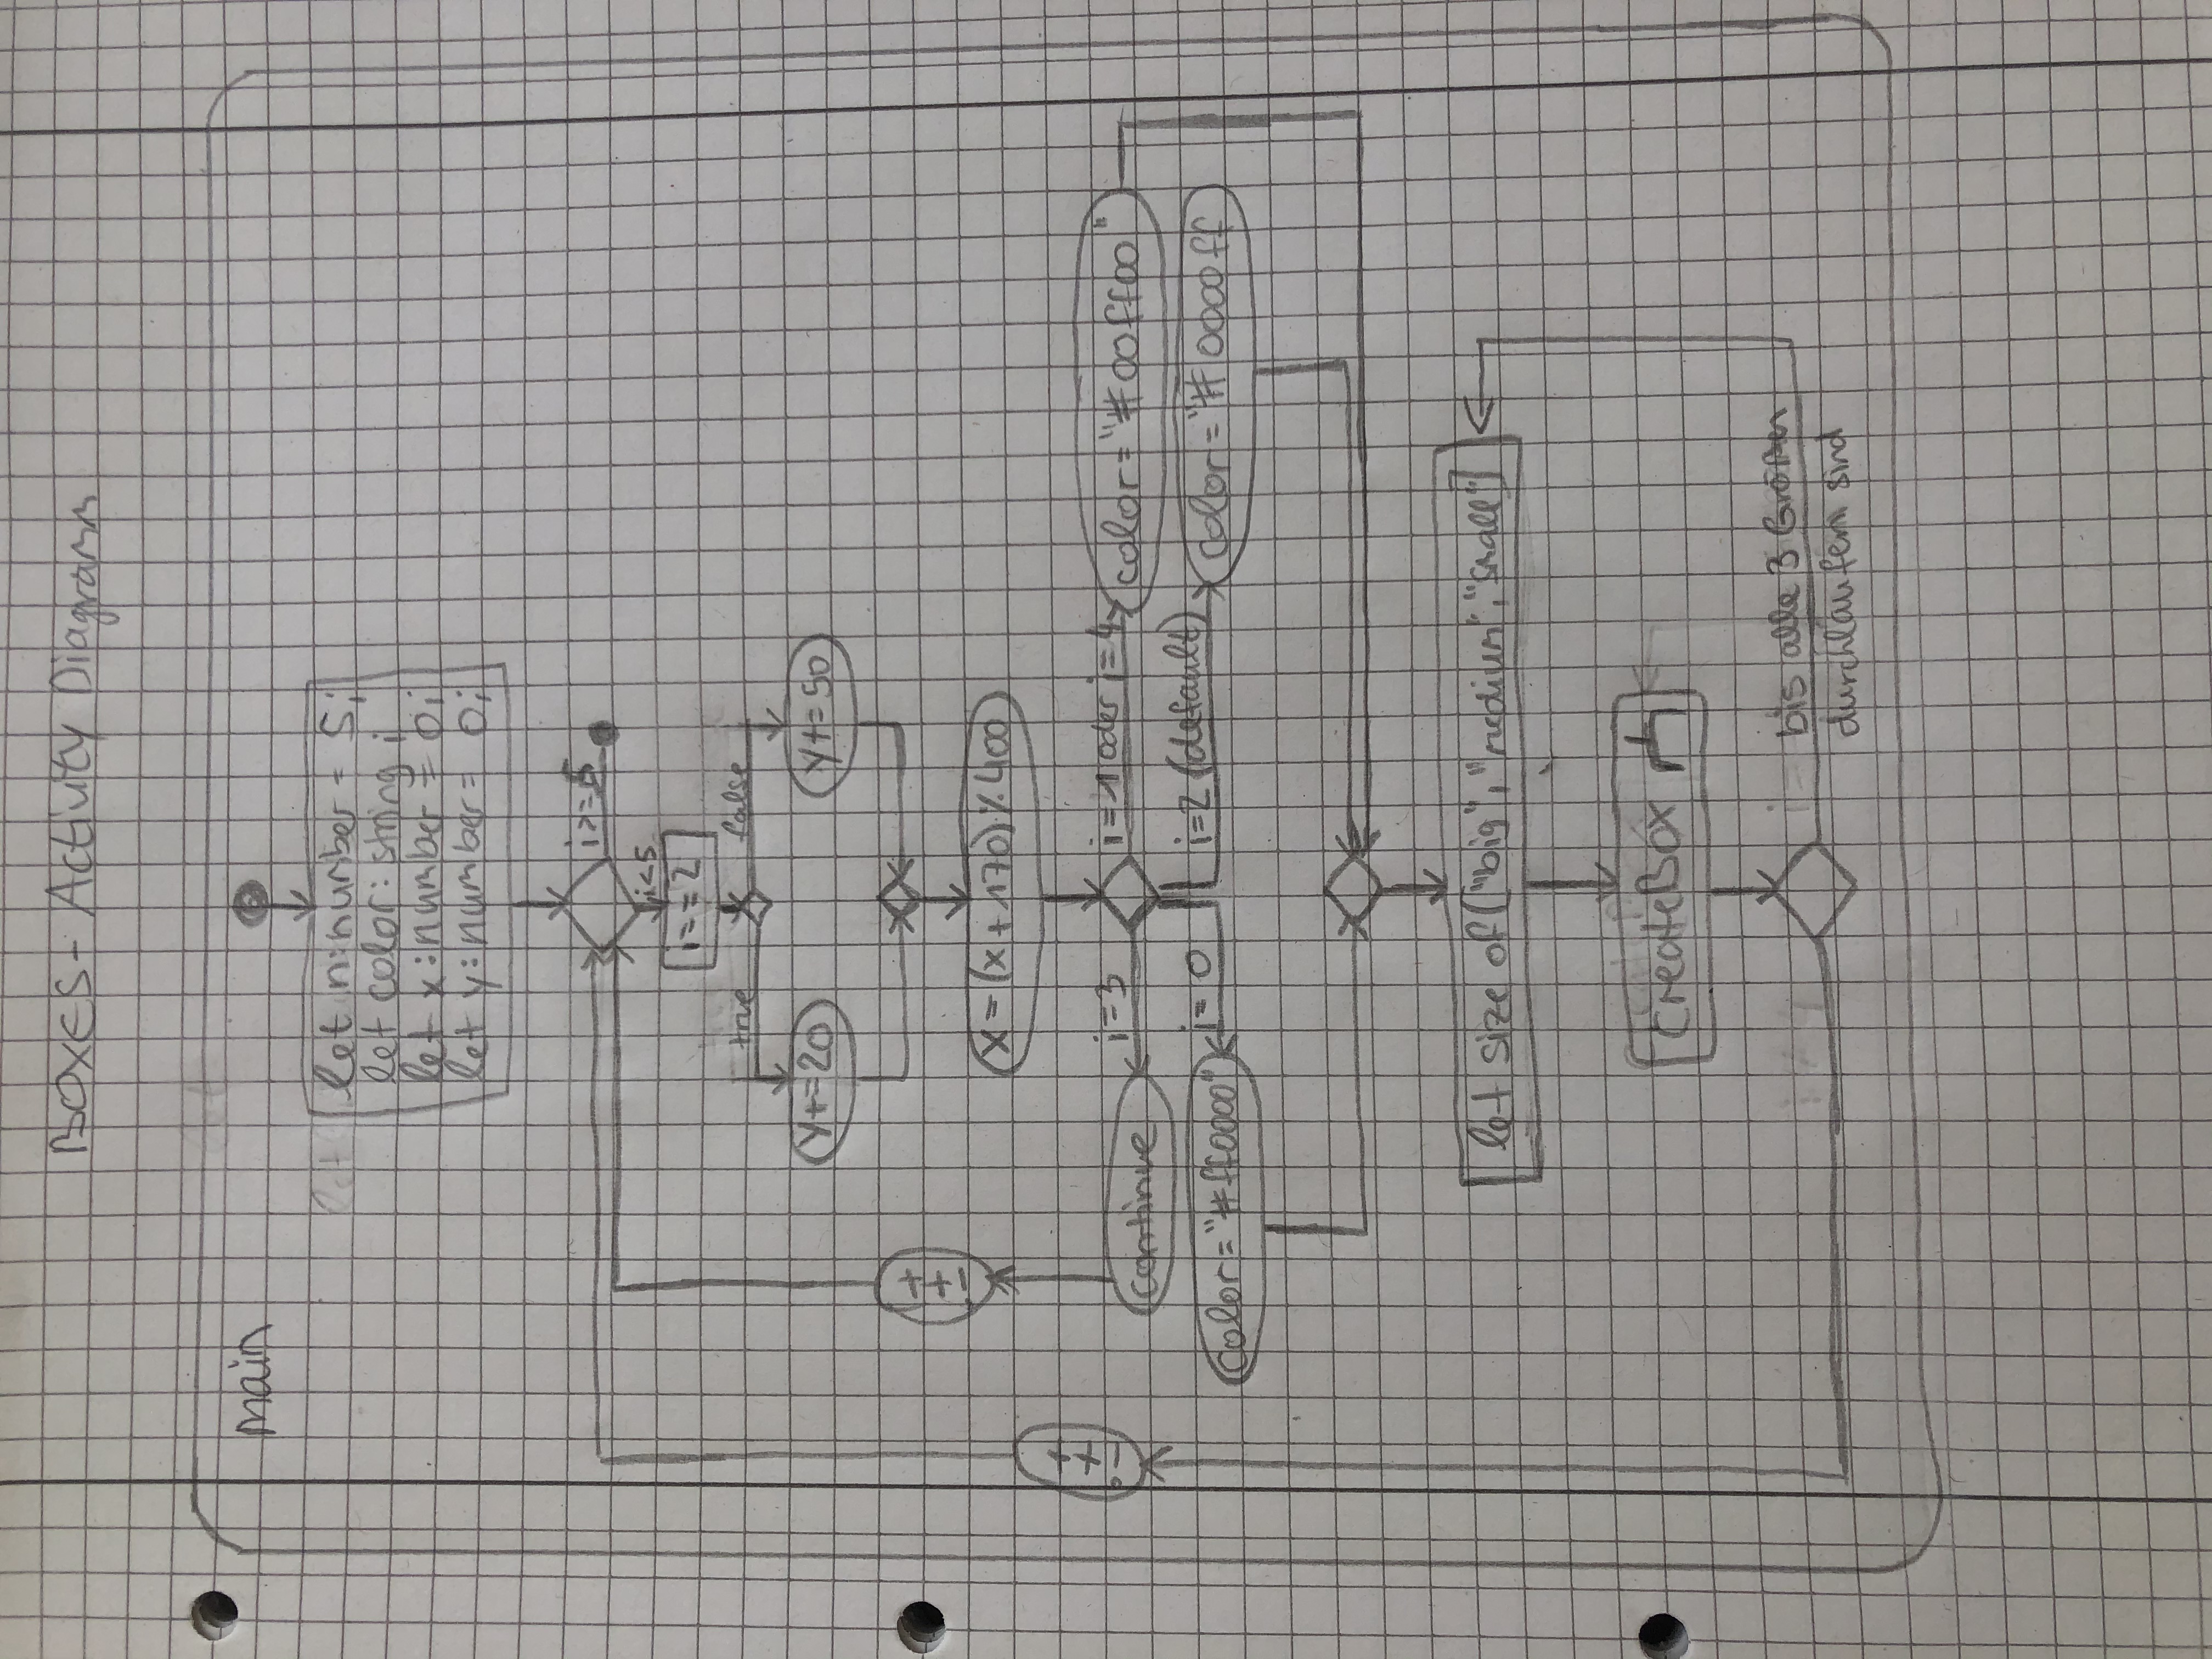 BOXES - Activity Diagramm
main
let n:number = 5;
let color: string ;
let x:number = 0;
let y:number = 0;
i>=5
i<5
i==2
true
false
y+=20
y+=50
i++
x=(x+170)%400
i++
i=3
i=1 oder i=4
continue
color="#00ff00"
i=0
i=2 (default)
color="#ff0000"
color="#0000ff
let size of ["big", "medium", "small"]
createBox
bis alle 3 Größen
durchlaufen sind